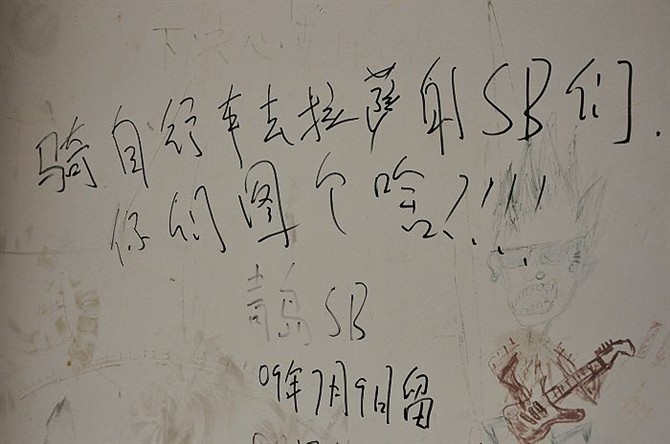 骑自行车去拉萨的SB们.
你们图个啥?!!!
青岛SB
09年7月9日留